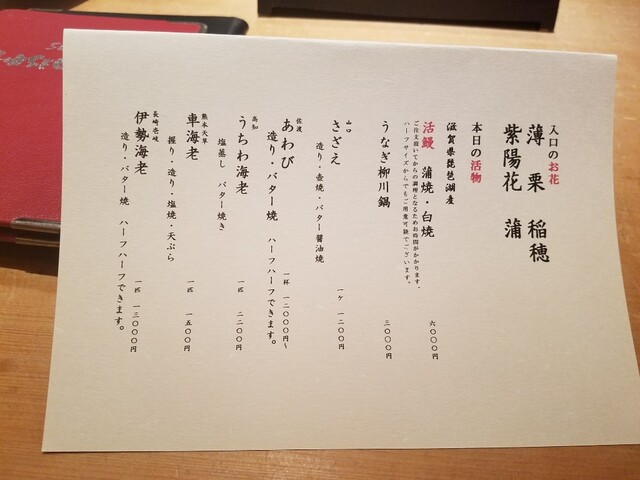 入口のお花
薄 栗 稲穂
紫陽花 蒲
本日の活物
滋賀県琵琶湖産
活鰻 蒲焼・白焼 六〇〇〇円
ご注文頂いてからの調理となるためお時間がかかります。
ハーフサイズからでもご用意可能でございます。
うなぎ柳川鍋 三〇〇〇円
山口
さざえ 一ケ 一二〇〇円
造り・壺焼・バター醤油焼
佐渡
あわび 一杯 一二〇〇〇円~
造り・バター焼 ハーフハーフできます。
高知
うちわ海老 一匹 二二〇〇円
塩蒸し バター焼き
熊本天草
車海老 一匹 一五〇〇円
握り・造り・塩焼・天ぷら
長崎壱岐
伊勢海老 一匹 一三〇〇〇円
造り・バター焼 ハーフハーフできます。